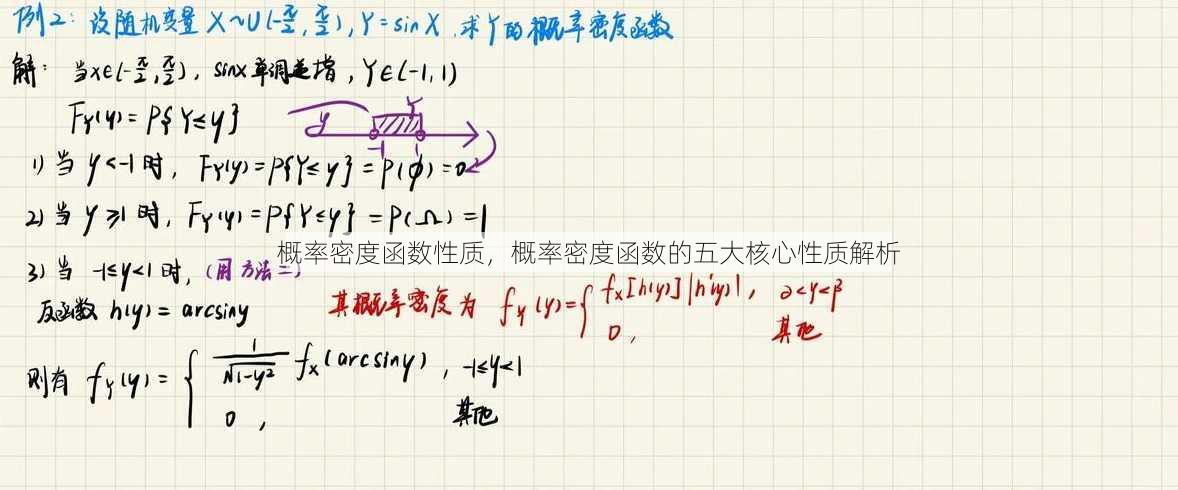 例2：设随机变量 X~U(-π/2, π/2), Y=sinX, 求Y的概率密度函数
解：当x∈(-π/2, π/2), sinx单调递增, Y∈(-1,1)
F_Y(y)=P{Y≤y}
y Y
-1 1
1) 当 y<-1 时, F_Y(y)=P{Y≤y}=P(ϕ)=0
2) 当 y≥1 时, F_Y(y)=P{Y≤y}=P(Ω)=1
概率密度函数性质，概率密度函数的五大核心性质解析
3) 当 -1≤y<1 时, (用方法二)
反函数 h(y)=arcsiny
其概率密度为 f_Y(y)={ f_X[h(y)]|h'(y)|, ∂<y<β
0, 其他
则有 f_Y(y)={ 1/√(1-y²) f_X(arcsiny), -1≤y<1
0, 其他